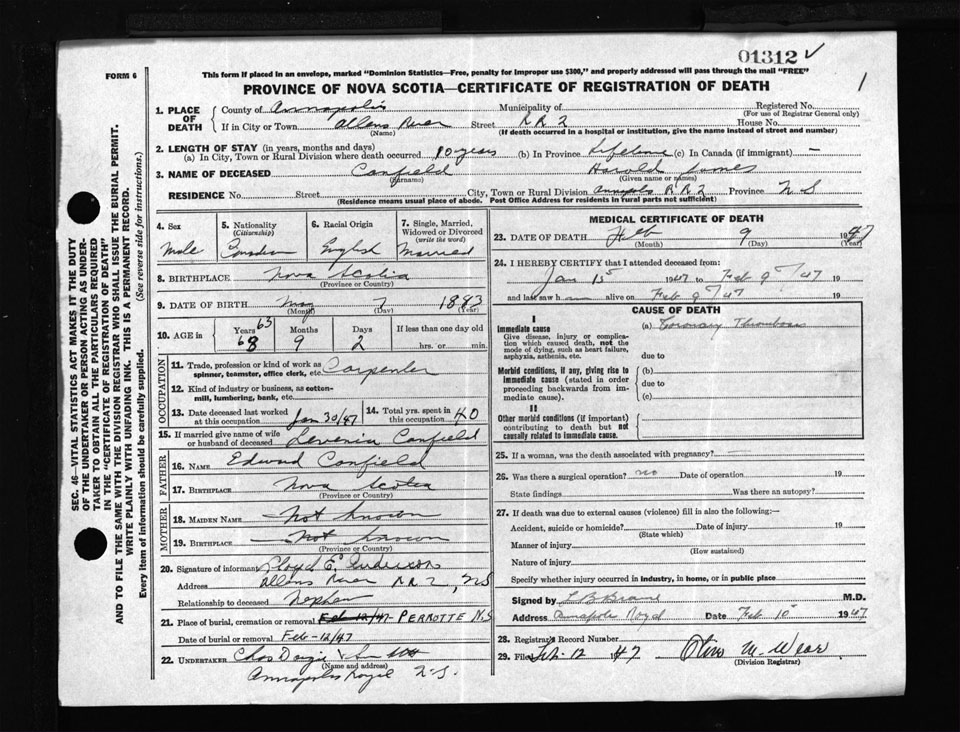 01312 ✓
FORM 6
This form if placed in an envelope, marked "Dominion Statistics—Free, penalty for improper use $300," and properly addressed will pass through the mail "FREE"
1
PROVINCE OF NOVA SCOTIA—CERTIFICATE OF REGISTRATION OF DEATH
1. PLACE OF DEATH
County of Annapolis Municipality of Registered No.
(For use of Registrar General only)
If in City or Town Allens River Street R R 2 House No.
(Name) (If death occurred in a hospital or institution, give the name instead of street and number)
2. LENGTH OF STAY (in years, months and days)
(a) In City, Town or Rural Division where death occurred 10 years (b) In Province Lifetime (c) In Canada (if immigrant) —
3. NAME OF DECEASED Canfield Harold James
(Surname) (Given name or names)
RESIDENCE No. Street City, Town or Rural Division Annapolis R R 2 Province N S
(Residence means usual place of abode. Post Office Address for residents in rural parts not sufficient)
4. Sex
Male
5. Nationality
(Citizenship)
Canadian
6. Racial Origin
English
7. Single, Married, Widowed or Divorced
(write the word)
Married
8. BIRTHPLACE Nova Scotia
(Province or Country)
9. DATE OF BIRTH May 7 1883
(Month) (Day) (Year)
10. AGE in
Years 63
68
Months
9
Days
2
If less than one day old
hrs. or min.
OCCUPATION
11. Trade, profession or kind of work as spinner, teamster, office clerk, etc. Carpenter
12. Kind of industry or business, as cotten-mill, lumbering, bank, etc.
13. Date deceased last worked at this occupation Jan 30/47
14. Total yrs. spent in this occupation 40
15. If married give name of wife or husband of deceased Levenia Canfield
FATHER
16. NAME Edward Canfield
17. BIRTHPLACE Nova Scotia
(Province or Country)
MOTHER
18. MAIDEN NAME Not known
19. BIRTHPLACE Not known
(Province or Country)
20. Signature of informant Floyd E. Anderson
Address Allens River R R 2, N S
Relationship to deceased Nephew
21. Place of burial, cremation or removal Feb-12/47- PERROTTE N.S
Date of burial or removal Feb-12/47
22. UNDERTAKER Chas Dargie
(Name and address)
Annapolis Royal N.S.
MEDICAL CERTIFICATE OF DEATH
23. DATE OF DEATH Feb 9 1947
(Month) (Day) (Year)
24. I HEREBY CERTIFY that I attended deceased from:
Jan 15 1947 to Feb 9 47 19
and last saw h m alive on Feb 9 47 19
CAUSE OF DEATH
I
Immediate cause
Give disease, injury or complication which caused death, not the mode of dying, such as heart failure, asphyxia, asthenia, etc.
(a) Coronary Thrombosis
due to
Morbid conditions, if any, giving rise to immediate cause (stated in order proceeding backwards from immediate cause).
(b)
due to
(c)
II
Other morbid conditions (if important) contributing to death but not causally related to immediate cause.
25. If a woman, was the death associated with pregnancy?
26. Was there a surgical operation? no Date of operation 19
State findings Was there an autopsy?
27. If death was due to external causes (violence) fill in also the following:—
Accident, suicide or homicide? Date of injury 19
(State which)
Manner of injury
(How sustained)
Nature of injury
Specify whether injury occurred in industry, in home, or in public place
Signed by L B Brane M.D.
Address Annapolis Royal Date Feb 10 1947
28. Registrar's Record Number
29. Filed Feb. 12 1947
(Division Registrar)
SEC. 46—VITAL STATISTICS ACT MAKES IT THE DUTY
OF THE UNDERTAKER OR PERSON ACTING AS UNDERTAKER TO OBTAIN ALL THE PARTICULARS REQUIRED
IN THE "CERTIFICATE OF REGISTRATION OF DEATH"
AND TO FILE THE SAME WITH THE DIVISION REGISTRAR WHO SHALL ISSUE THE BURIAL PERMIT.
WRITE PLAINLY WITH UNFADING INK. THIS IS A PERMANENT RECORD.
Every item of information should be carefully supplied. (See reverse side for instructions.)